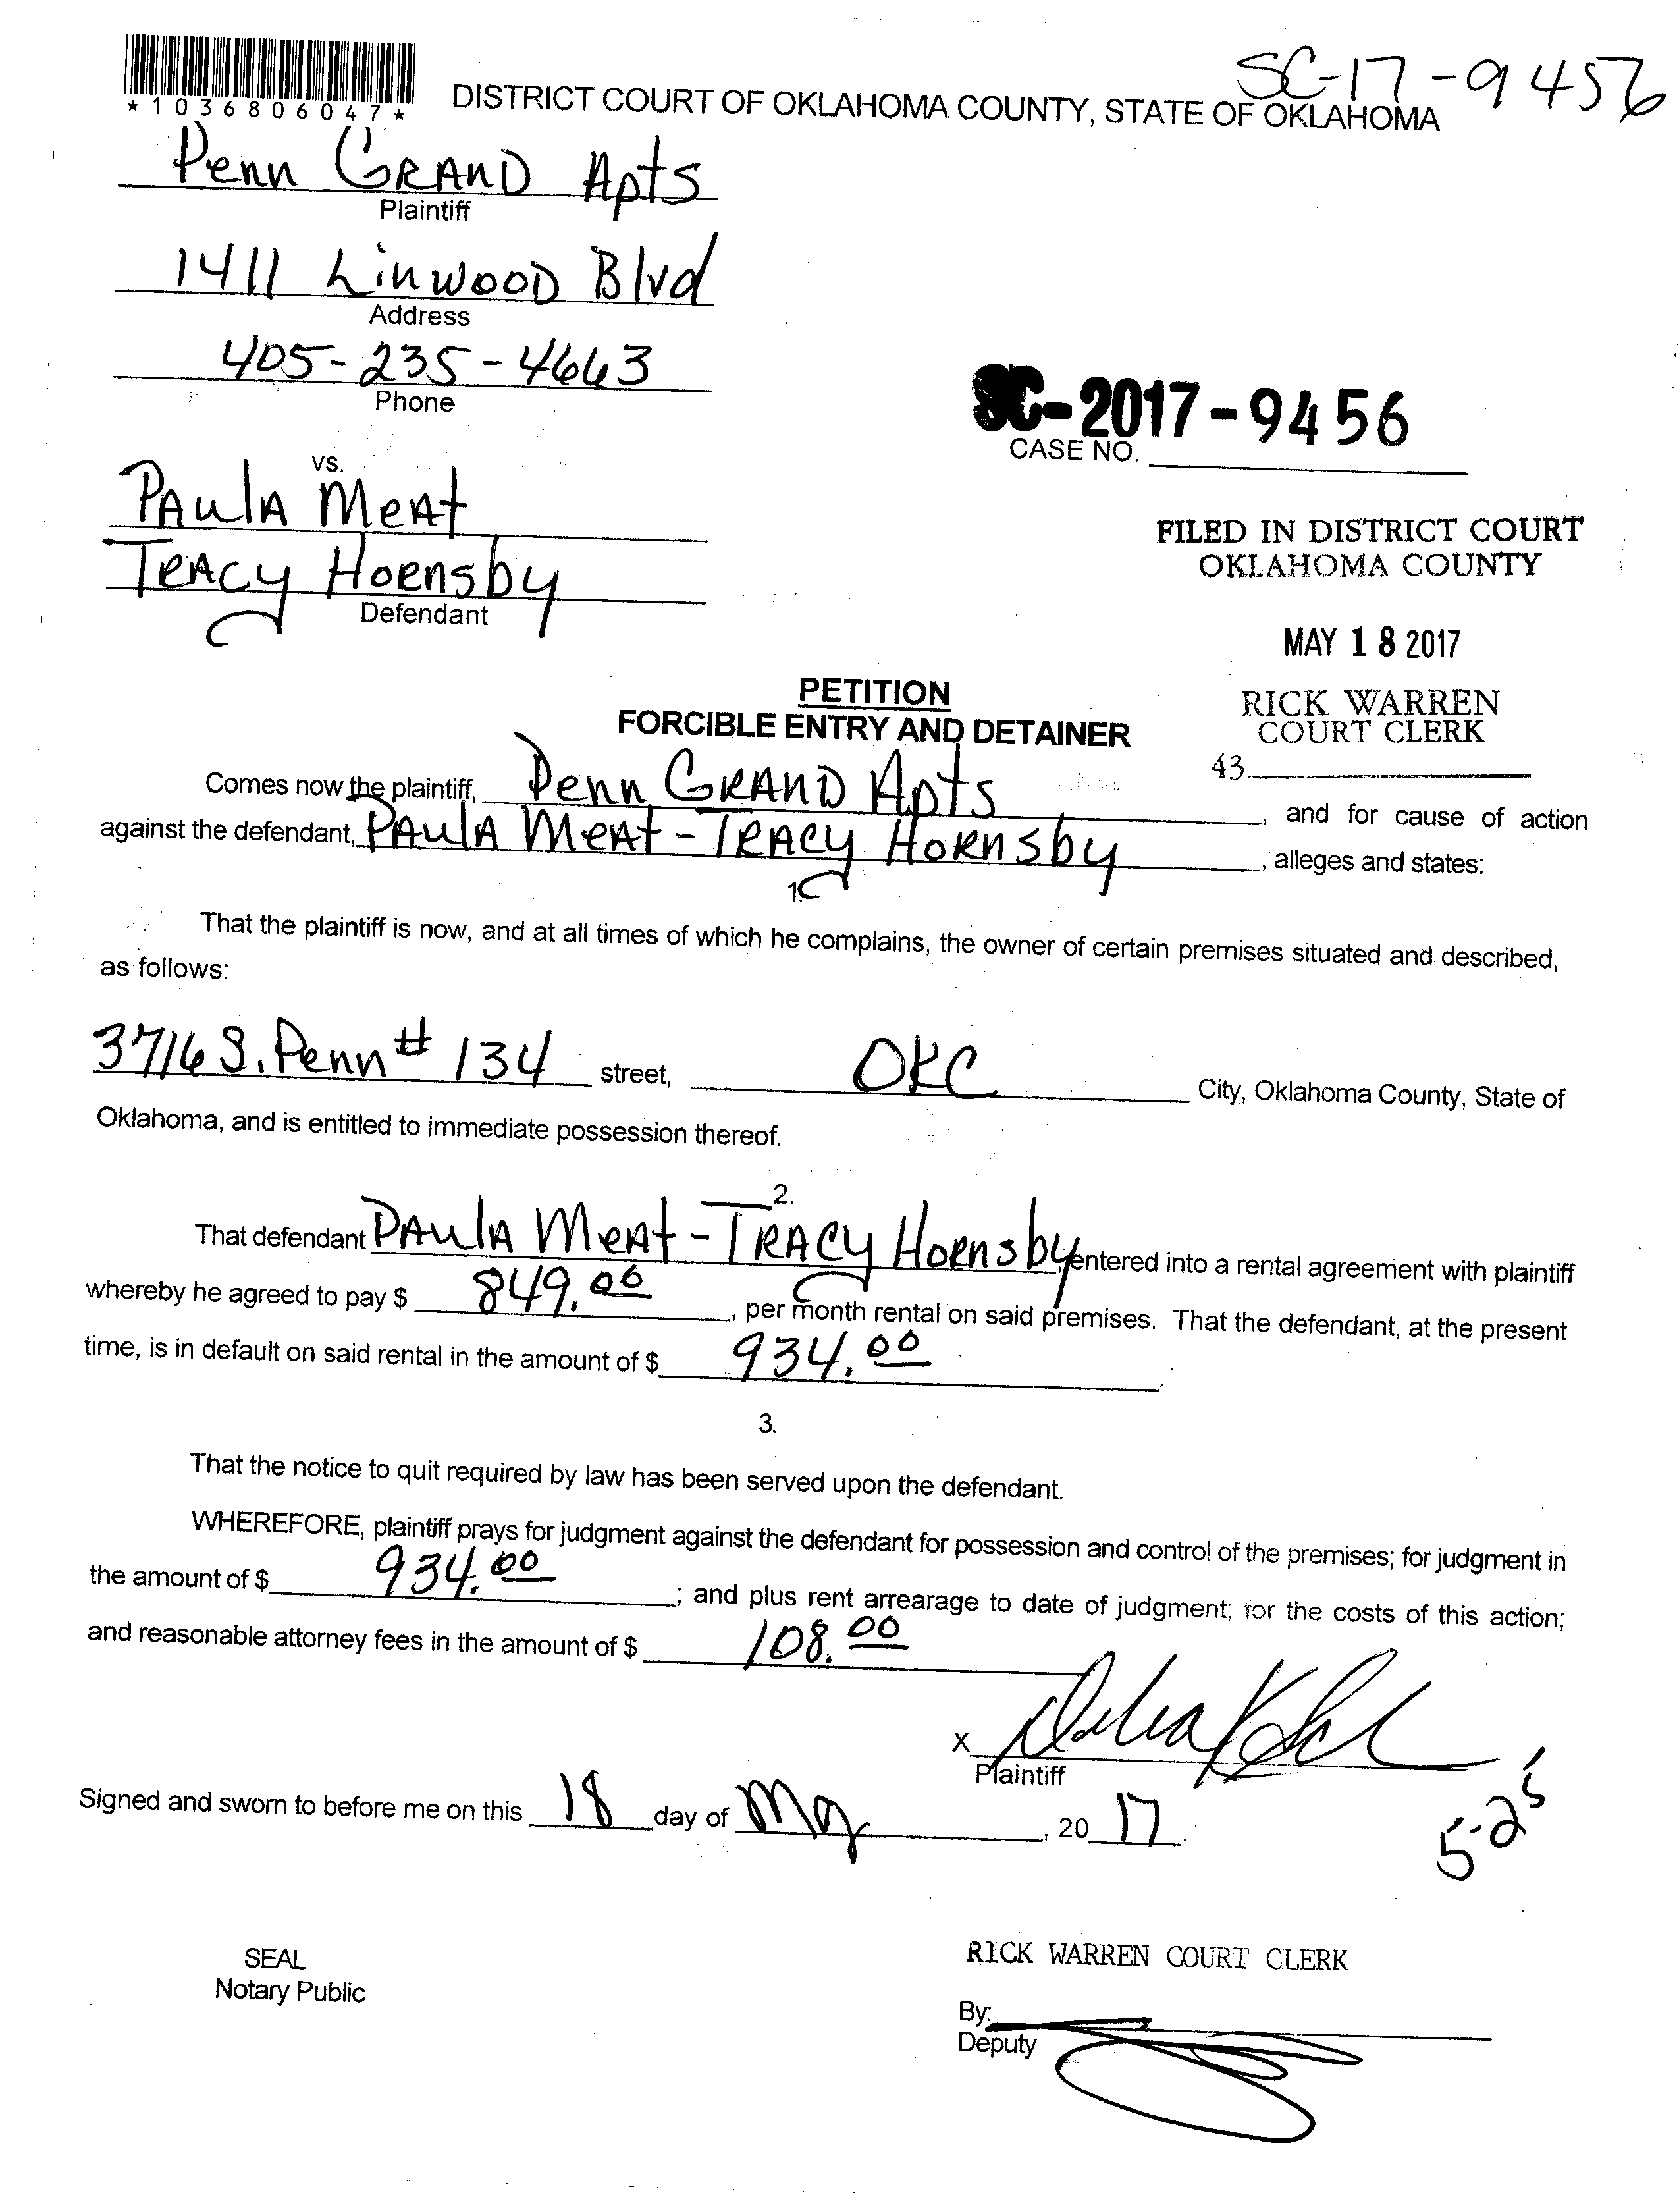 SC-17-9456
*1036806047*
DISTRICT COURT OF OKLAHOMA COUNTY, STATE OF OKLAHOMA
Penn GRAND Apts
Plaintiff
1411 LinwooD Blvd
Address
405-235-4663
Phone
SC-2017-9456
CASE NO.
vs.
PAulA MeAt
TRACy HoRnsby
Defendant
FILED IN DISTRICT COURT
OKLAHOMA COUNTY
MAY 18 2017
RICK WARREN
COURT CLERK
43
PETITION
FORCIBLE ENTRY AND DETAINER
Comes now the plaintiff, Penn GRAND Apts, and for cause of action
against the defendant, PAulA MeAt - TRACy HoRnsby, alleges and states:
1.
That the plaintiff is now, and at all times of which he complains, the owner of certain premises situated and described,
as follows:
3716 S. Penn # 134 street, OKC City, Oklahoma County, State of
Oklahoma, and is entitled to immediate possession thereof.
2.
That defendant PAulA MeAt - TRACy HoRnsby, entered into a rental agreement with plaintiff
whereby he agreed to pay $ 849.00, per month rental on said premises. That the defendant, at the present
time, is in default on said rental in the amount of $ 934.00.
3.
That the notice to quit required by law has been served upon the defendant.
WHEREFORE, plaintiff prays for judgment against the defendant for possession and control of the premises; for judgment in
the amount of $ 934.00; and plus rent arrearage to date of judgment; for the costs of this action;
and reasonable attorney fees in the amount of $ 108.00
X
Plaintiff
Signed and sworn to before me on this 18 day of May, 2017.
5-25
SEAL
Notary Public
RICK WARREN COURT CLERK
By:
Deputy